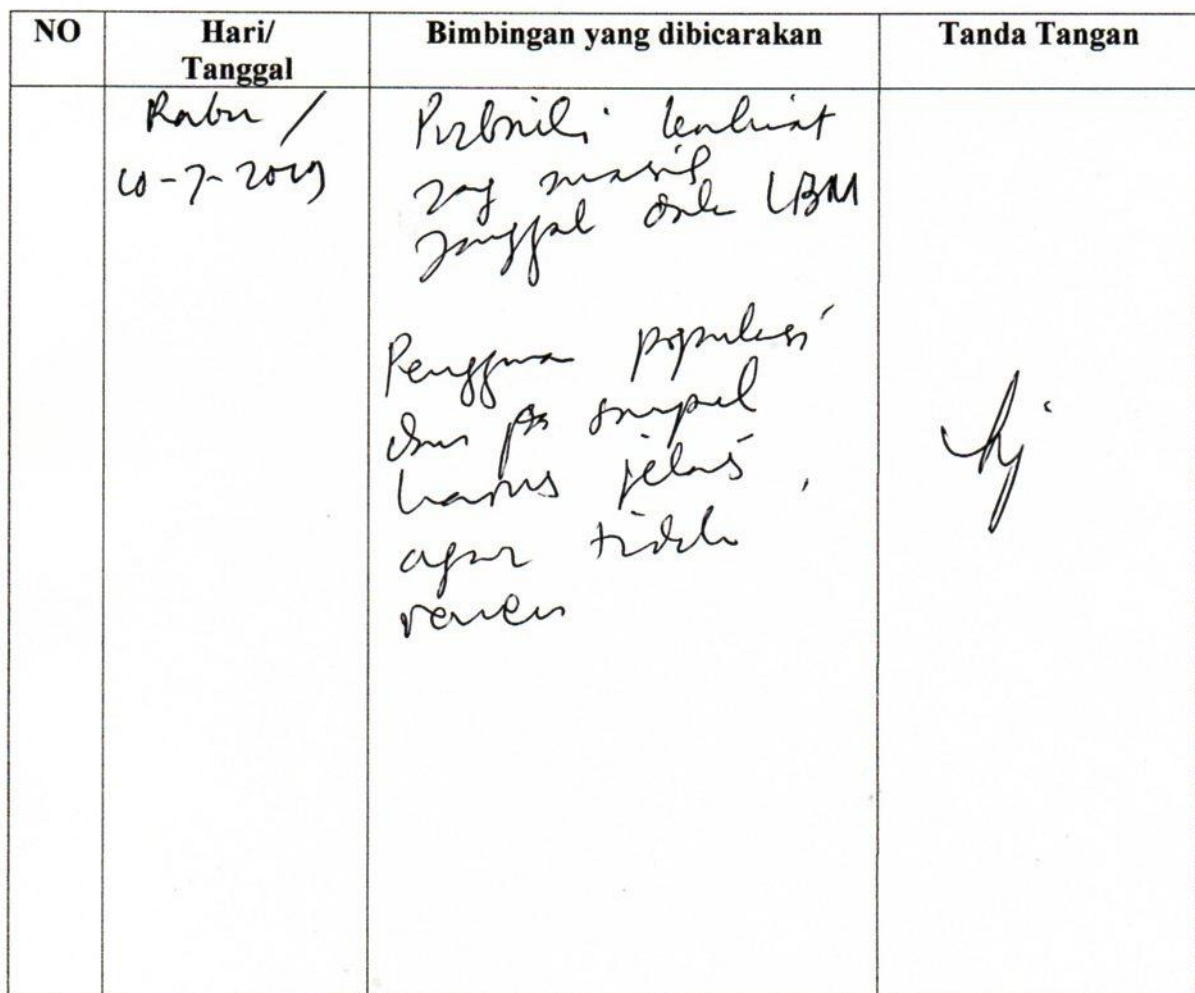 NO
Hari/
Tanggal
Bimbingan yang dibicarakan
Tanda Tangan
Rabu /
10-7-2019
Perbaiki kalimat
yag masih
janggal dala LBM
Penggunaa populasi
dan sampel
harus jelas,
agar tidak
rancu